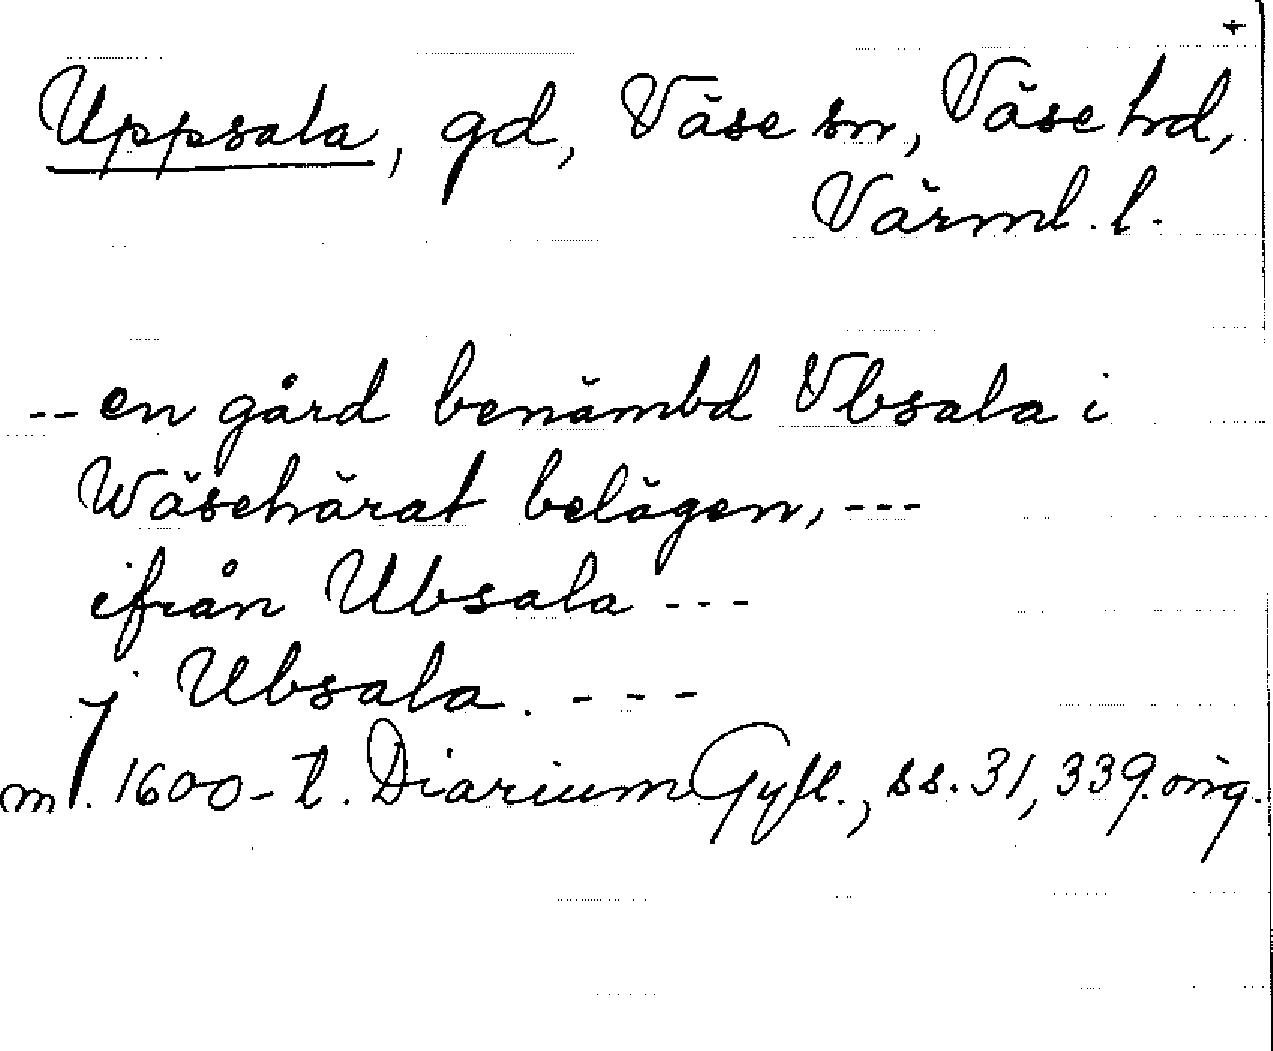 +
Uppsala, gd, Väse sn, Väse hd,
Värml. l.
-- en gård benämbd Vbsala i
Wäsehärat belägen, ---
ifrån Ubsala ---
j Ubsala. ---
m. 1600-t. Diarium Gyll., ss. 31, 339. orig.